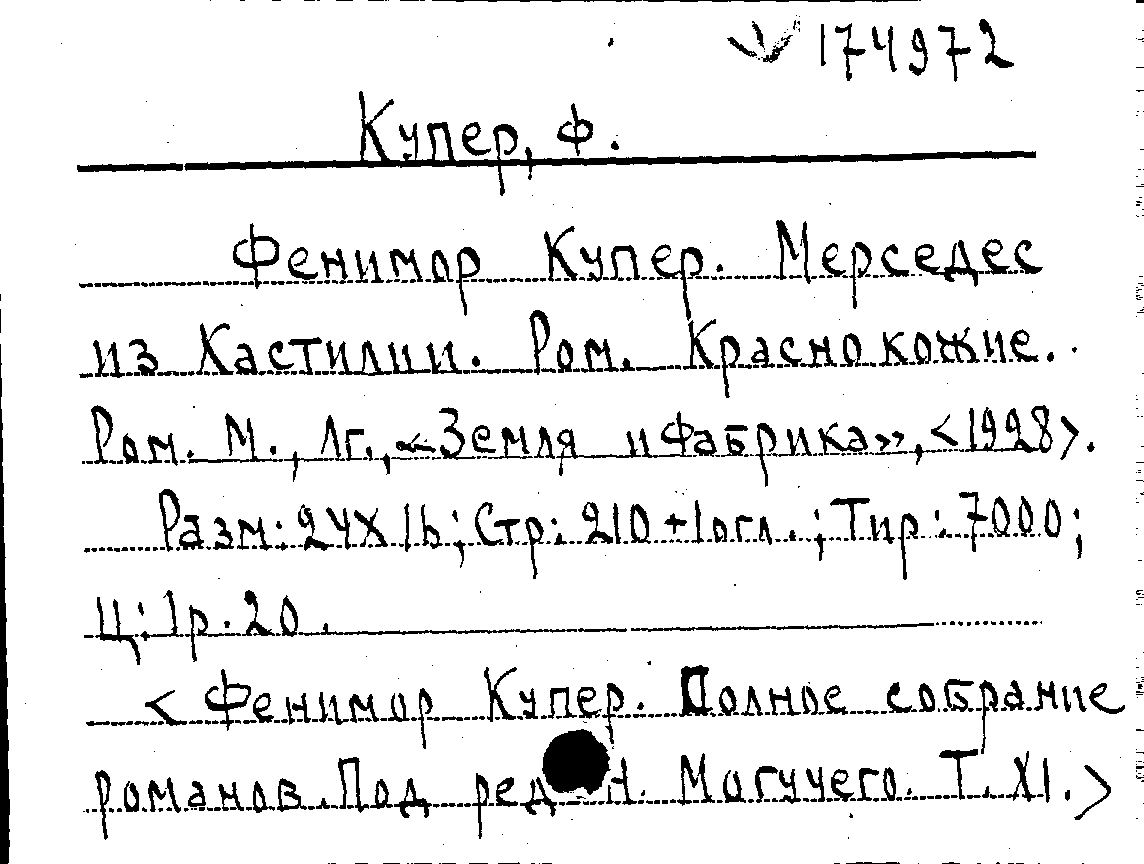 174972
Купер, Ф.
Фенимор Купер. Мерседес
из Кастилии. Ром. Краснокожие.
Ром. М., Лг., «Земля и Фабрика», <1928>.
Разм: 24X16; Стр: 210+1огл.; Тир: 7000;
Ц: 1р.20.
<Фенимор Купер. Полное собрание
романов. Под ред Н. Могучего. Т. XI.>